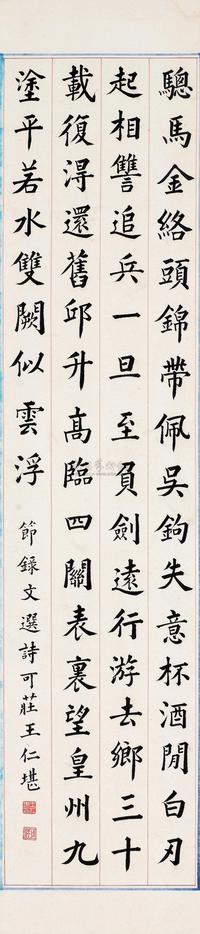 驄馬金絡頭錦帶佩吳鉤失意杯酒閒白刃
起相讐追兵一旦至負劍遠行游去鄉三十
載復淂還舊邱升高臨四關表裏望皇州九
塗平若水雙闕似雲浮
節錄文選詩可莊王仁堪